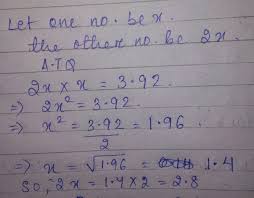 Let one no. be x.
the other no. be 2x.
A.T.Q
2x × x = 3.92
⇒ 2x² = 3.92
⇒ x² = 3.92/2 = 1.96
⇒ x = √1.96 = 1.4
So, 2x = 1.4 × 2 = 2.8